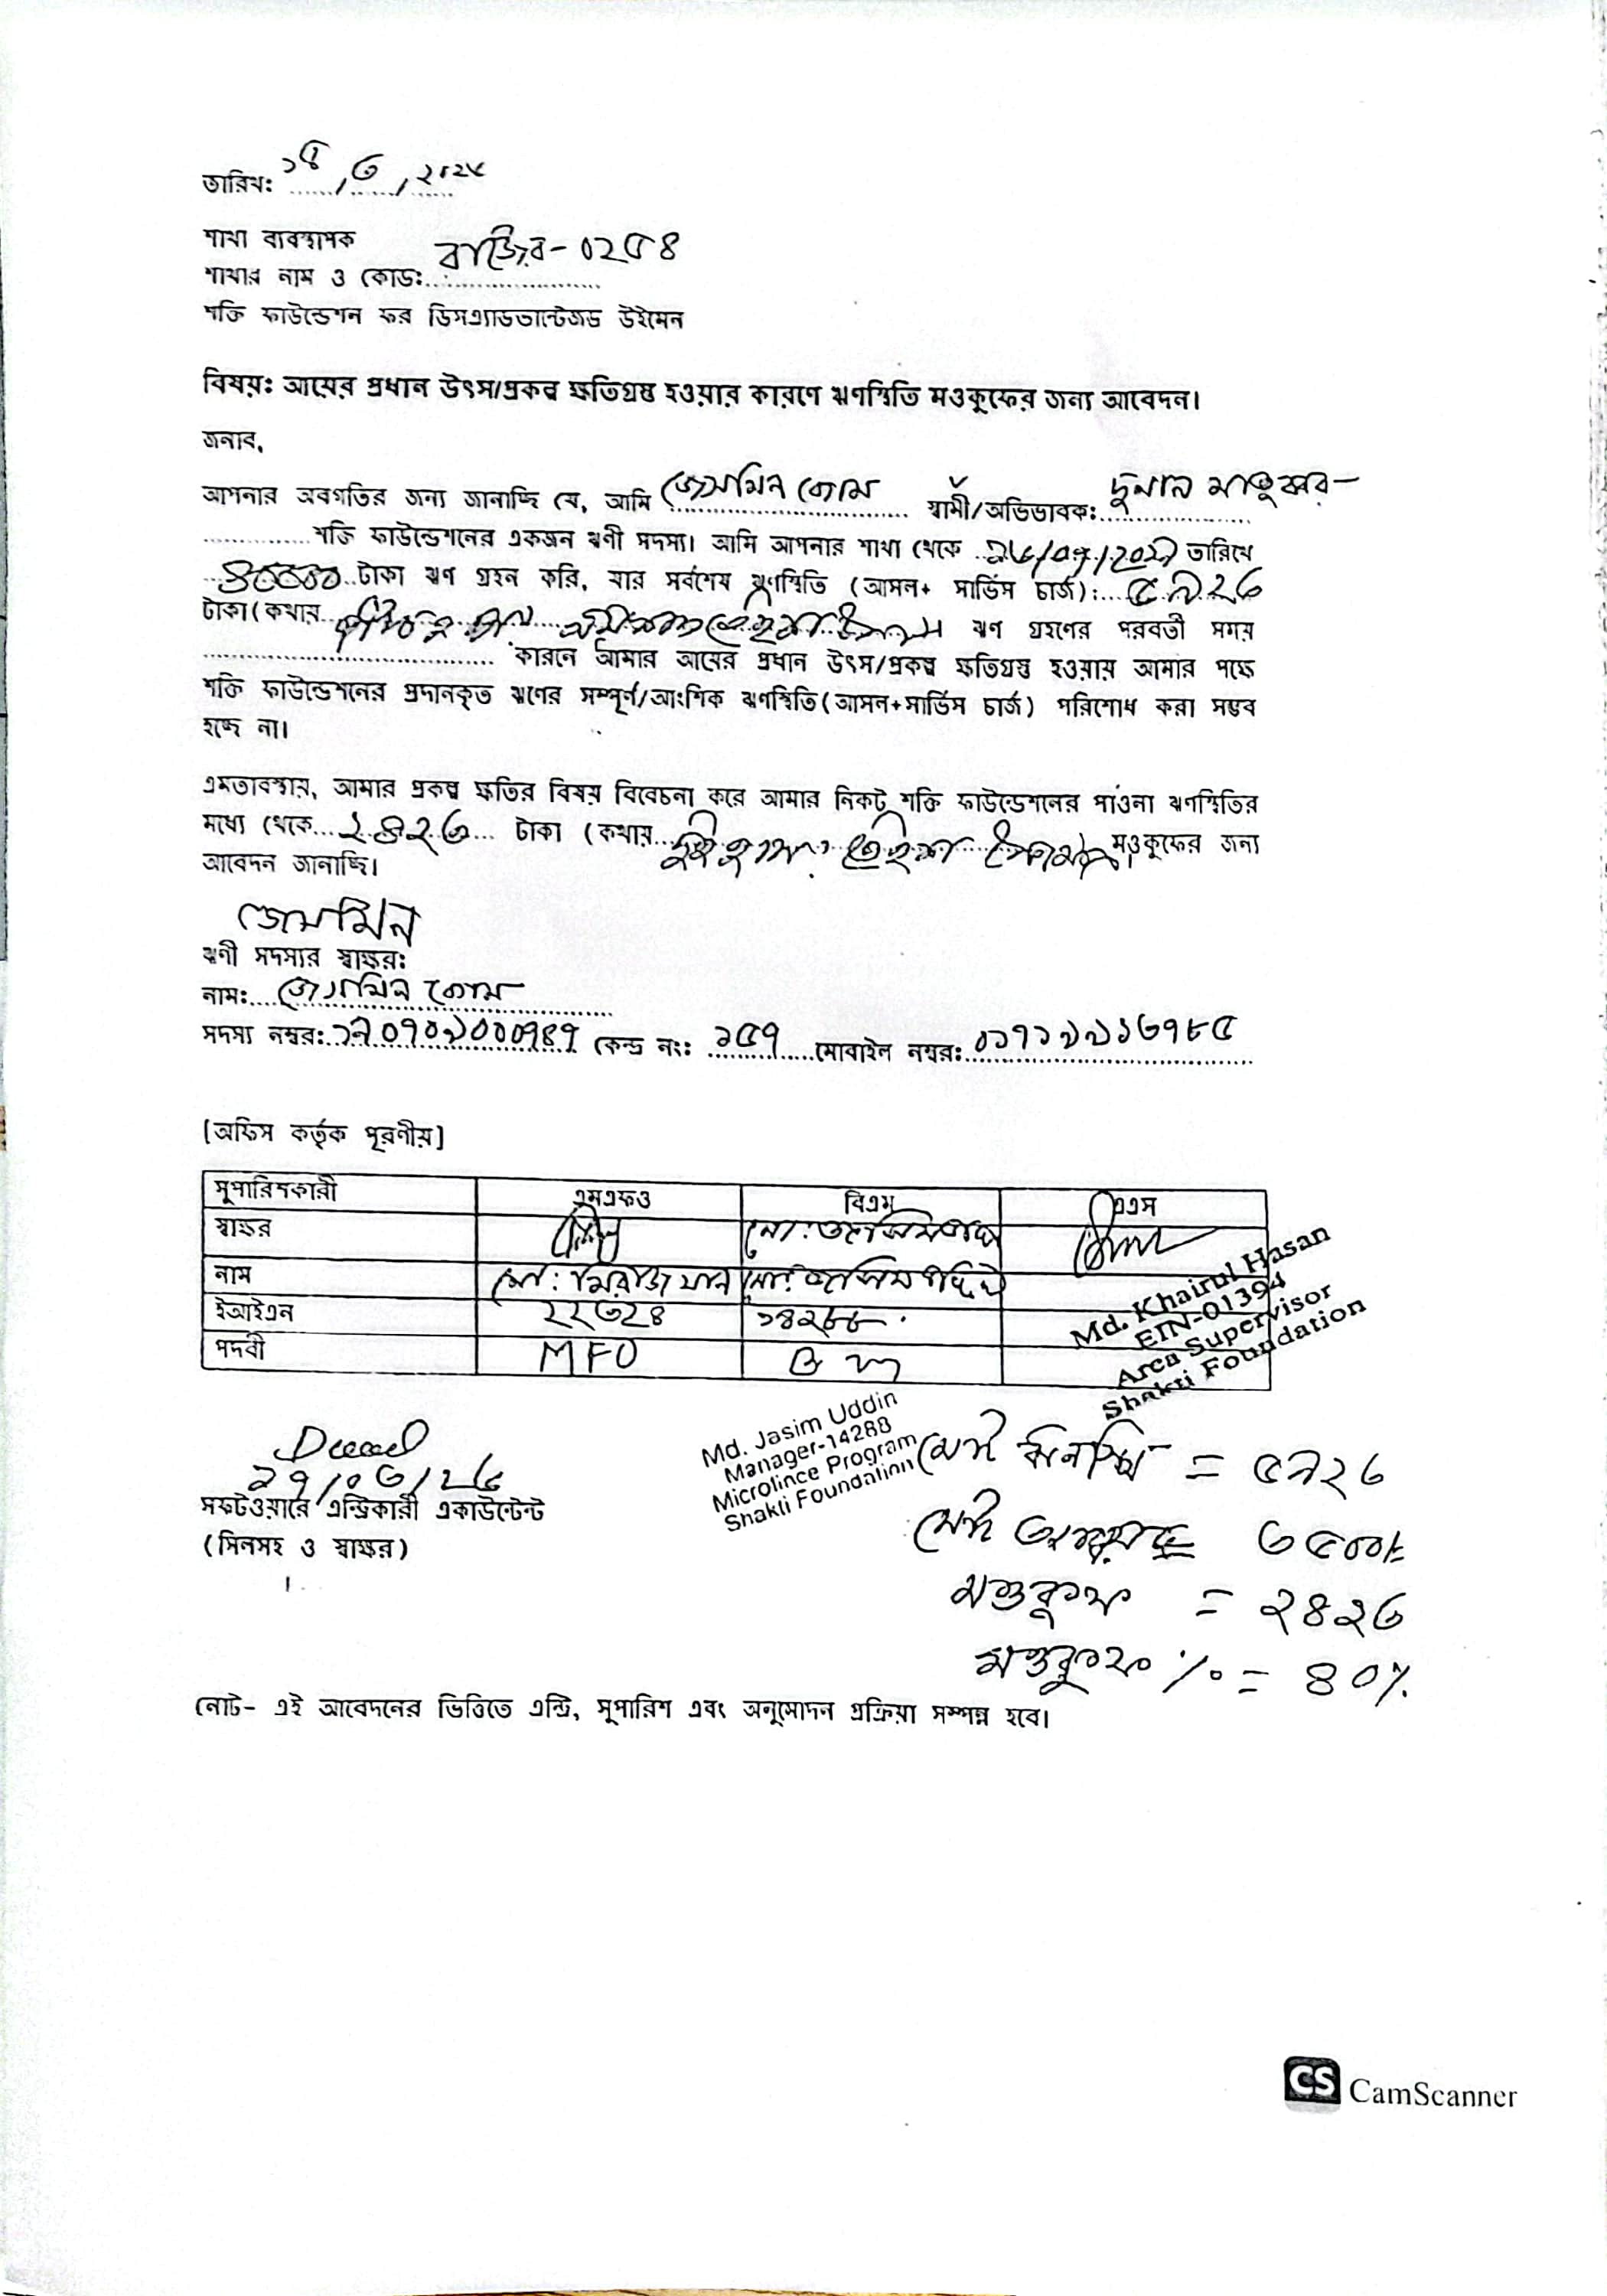 তারিখ: ১৪/৩/২০২৫
শাখা ব্যবস্থাপক
শাখার নাম ও কোড: রাজৈর-০২৫৪
শক্তি ফাউন্ডেশন ফর ডিসএ্যাডভান্টেজড উইমেন
বিষয়: আয়ের প্রধান উৎস/প্রকল্প ক্ষতিগ্রস্ত হওয়ার কারণে ঋণস্থিতি মওকুফের জন্য আবেদন।
জনাব,
আপনার অবগতির জন্য জানাচ্ছি যে, আমি জেসমিন বেগম স্বামী/অভিভাবক: দুলাল মাতুব্বর
শক্তি ফাউন্ডেশনের একজন ঋণী সদস্য। আমি আপনার শাখা থেকে তারিখে
টাকা ঋণ গ্রহন করি, যার সর্বশেষ ঋণস্থিতি (আসল+ সার্ভিস চার্জ): ৫৯২৬
টাকা (কথায় পাঁচ হাজার নয়শত ছাব্বিশ ঋণ গ্রহণের পরবর্তী সময়
কারনে আমার আয়ের প্রধান উৎস/প্রকল্প ক্ষতিগ্রস্ত হওয়ায় আমার পক্ষে
শক্তি ফাউন্ডেশনের প্রদানকৃত ঋণের সম্পূর্ণ/আংশিক ঋণস্থিতি(আসল+সার্ভিস চার্জ) পরিশোধ করা সম্ভব
হচ্ছে না।
এমতাবস্থায়, আমার প্রকল্প ক্ষতির বিষয় বিবেচনা করে আমার নিকট শক্তি ফাউন্ডেশনের পাওনা ঋণস্থিতির
মধ্যে থেকে ২৪২৬ টাকা (কথায় দুই হাজার মওকুফের জন্য
আবেদন জানাচ্ছি।
জেসমিন
ঋণী সদস্যর স্বাক্ষর:
নাম: জেসমিন বেগম
সদস্য নম্বর: কেন্দ্র নং: ১৫৭ মোবাইল নম্বর: ০১৭১৯৯১৬৭৮৫
[অফিস কর্তৃক পূরণীয়]
সুপারিশকারী এমএফও বিএম এএস
স্বাক্ষর মো: জসিম উদ্দিন
নাম মো: মিরাজ খান মো: জসিম উদ্দিন
ইআইএন ২২৩২৪ ১৪২৮৮
পদবী MFO BM
Md. Khairul Hasan
EIN-01394
Area Supervisor
Shakti Foundation
Md. Jasim Uddin
Manager-14288
Microfince Program
Shakti Foundation
সফটওয়ারে এন্ট্রিকারী একাউন্টেন্ট
(সিলসহ ও স্বাক্ষর)
মোট ঋনস্থিতি = ৫৯২৬
মোট আদায় = ৩৫০০/-
মওকুফ = ২৪২৬
মওকুফ % = ৪০%
নোট- এই আবেদনের ভিত্তিতে এন্ট্রি, সুপারিশ এবং অনুমোদন প্রক্রিয়া সম্পন্ন হবে।
CS CamScanner